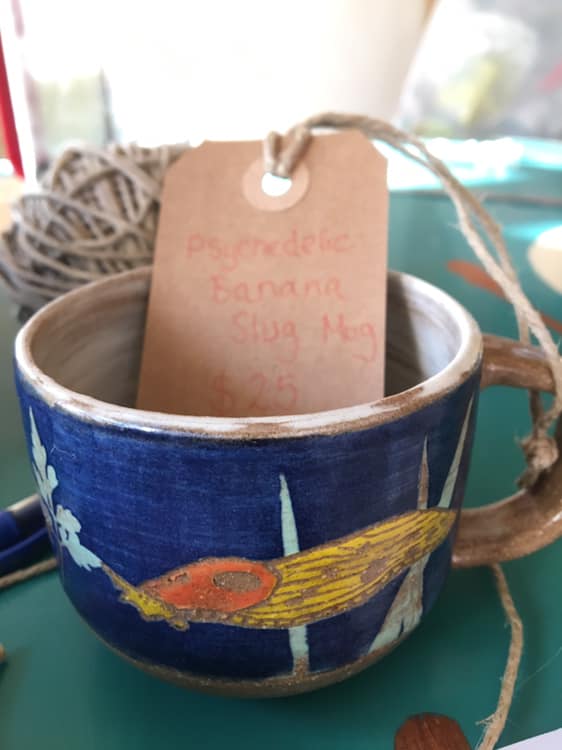 Psychedelic
Banana
Slug Mug
$25